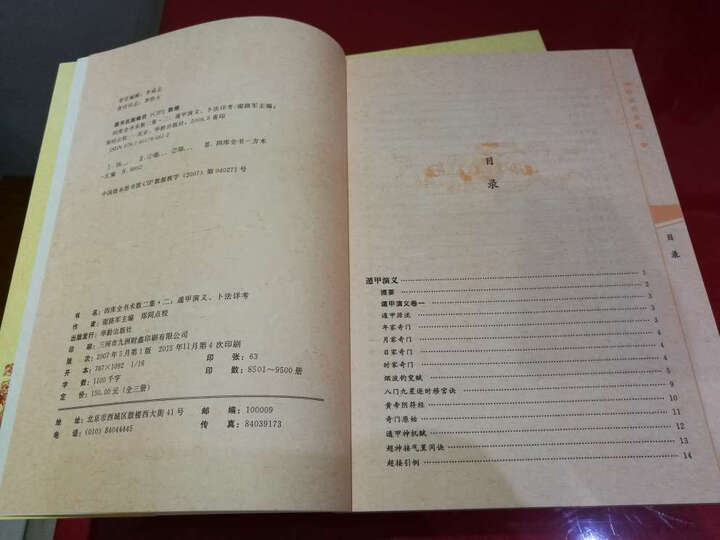 图书在版编目（CIP）数据
四库全书术数二集·二，遁甲演义、卜法详考/谢路军主编；
中国版本图书馆CIP数据核字（2007）第040271号
书　名：四库全书术数二集·二：遁甲演义、卜法详考
作　者：谢路军主编　郑同点校
出版发行：华龄出版社
印　刷：三河市九洲财鑫印刷有限公司
版　次：2007年5月第1版　2015年11月第4次印刷
开　本：787×1092　1/16　印　张：63
字　数：1100千字　印　数：8501～9500册
定　价：150.00元（全三册）
地　址：北京市西城区鼓楼西大街41号　邮　编：100009
电　话：(010) 84044445　传　真：84039173
目
录
遁甲演义 1
提要
遁甲演义卷一
遁甲源流
年家奇门
月家奇门
日家奇门
时家奇门
烟波钓叟赋
八门九星逐时移宫诀 9
黄帝阴符经 10
奇门原始 11
遁甲神机赋 12
超神接气置闰诀 13
超接引例 14
目
录